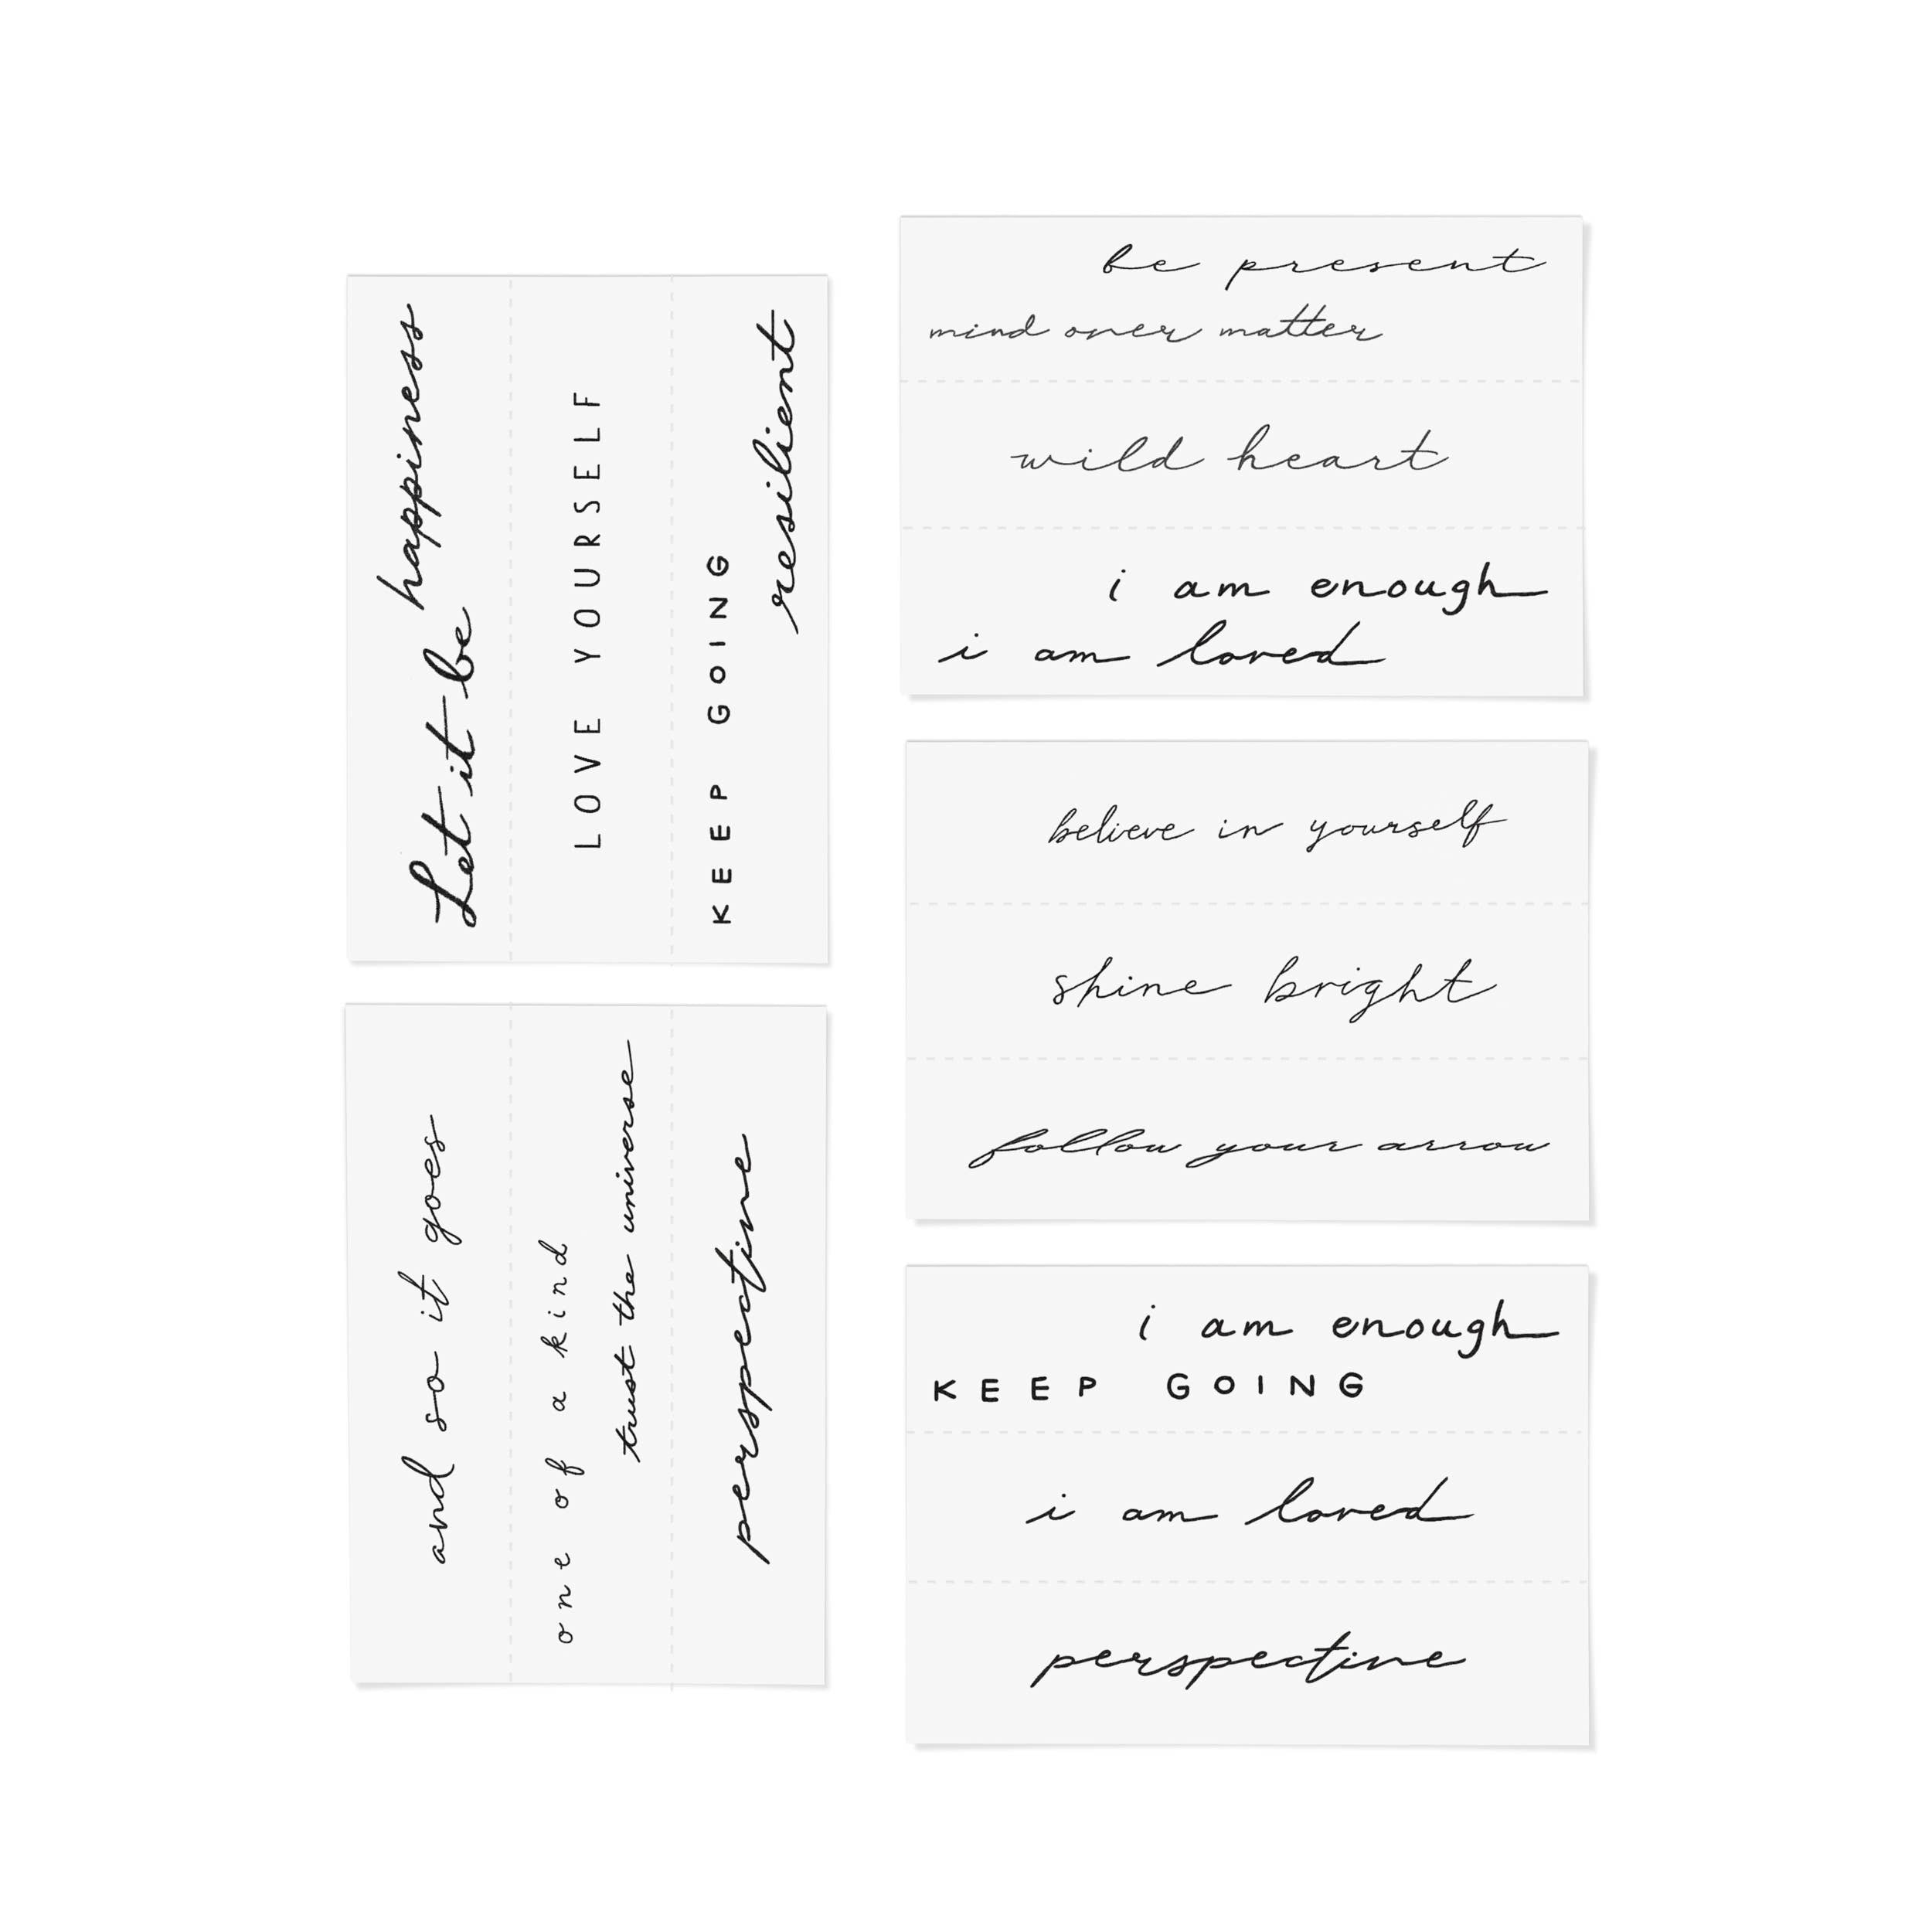 happiness
Let it be
LOVE YOURSELF
KEEP GOING
resilient
and so it goes
one of a kind
trust the universe
perspective
be present
mind over matter
wild heart
i am enough
i am loved
believe in yourself
shine bright
follow your arrow
i am enough
KEEP GOING
i am loved
perspective